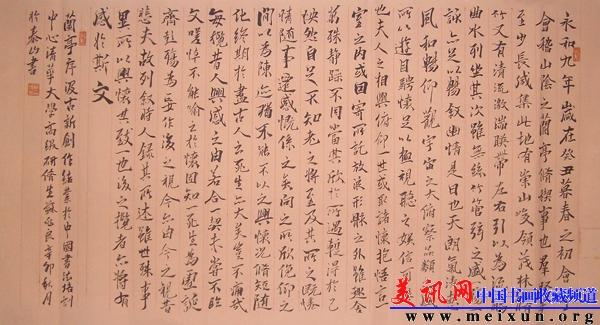 永和九年歲在癸丑暮春之初會
會稽山陰之蘭亭脩稧事也群賢
至少長咸集此地有崇山峻領茂林脩
竹又有清流激湍暎帶左右引以為流觴
曲水列坐其次雖無絲竹管弦之盛
詠亦足以暢敘幽情是日也天朗氣清
風和暢仰觀宇宙之大俯察品類
所以遊目騁懷足以極視聽之娛信可
也夫人之相與俯仰一世或取諸懷抱悟言一
室之內或因寄所託放浪形骸之外雖趣舍
萬殊靜躁不同當其欣於所遇暫得於己
快然自足不知老之將至及其所之既倦
情隨事遷感慨係之矣向之所欣俛仰之
間以為陳迹猶不能不以之興懷況脩短隨
化終期於盡古人云死生亦大矣豈不痛哉
每攬昔人興感之由若合一契未嘗不臨
文嗟悼不能喻之於懷固知死生為虛誕
齊彭殤為妄作後之視今亦由今之視昔
悲夫故列敘時人錄其所述雖世殊事
異所以興懷其致一也後之攬者亦將有
感於斯文
蘭亭序汲古新創作結業於中國書法培訓
中心清華大學高級研修生蘇永良辛卯秋月
於泰山書
美讯网 中国书画收藏频道
www.meixun.org